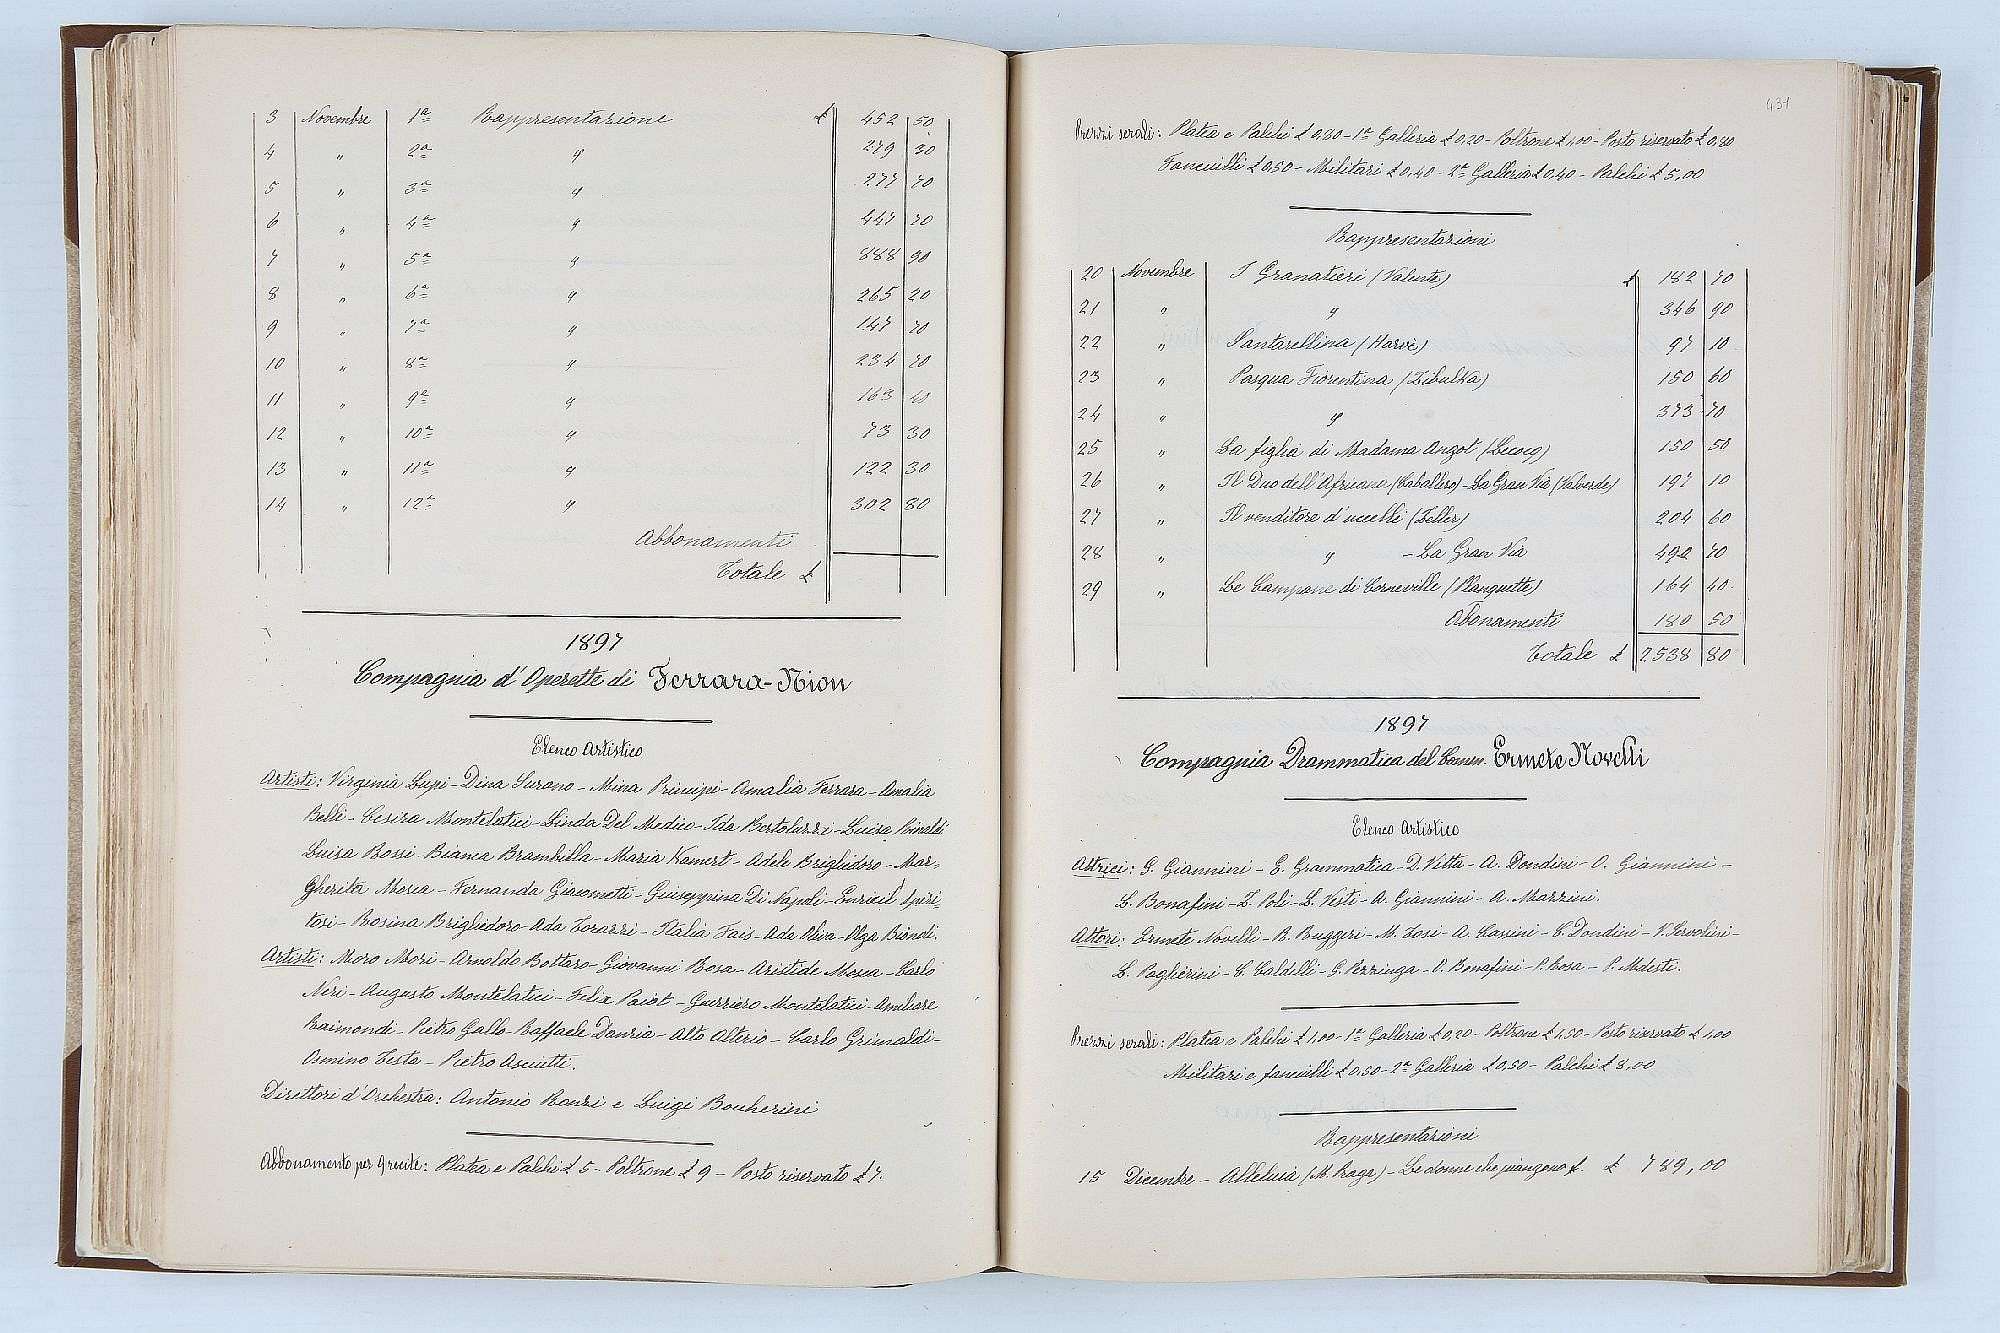 3 Novembre 1ª Rappresentazione £ 452 50
4 " 2ª " 279 30
5 " 3ª " 277 70
6 " 4ª " 447 70
7 " 5ª " 888 90
8 " 6ª " 265 20
9 " 7ª " 147 70
10 " 8ª " 234 70
11 " 9ª " 163 40
12 " 10ª " 73 30
13 " 11ª " 122 30
14 " 12ª " 302 80
Abbonamenti
Totale £
1897
Compagnia d'Operette di Ferrara-Nion
Elenco Artistico
Artisti: Virginia Lupi - Dina Surano - Mina Principi - Amalia Ferrara - Amalia
Belli - Cesira Montelatici - Linda Del Medico - Ida Bertoluzzi - Luisa Rinaldi
Luisa Rossi Bianca Brambilla - Maria Kamert - Adele Brigliadoro - Mar-
gherita Mosca - Fernanda Giacometti - Giuseppina Di Napoli - Spiri-
tosi - Rosina Brigliadoro - Ada Torazzi - Italia Fais - Ada Oliva - Olga Biondi.
Artisti: Moro Mori - Arnoldo Bottaro - Giovanni Rosa - Aristide Mosca - Carlo
Neri - Augusto Montelatici - Felix Paiot - Guerriero Montelatici - Amilcare
Raimondi - Pietro Gallo - Raffaele Dauria - Alto Alterio - Carlo Grimaldi -
Osmino Testa - Pietro Asciutti.
Direttori d'Orchestra: Antonio Ronzi e Luigi Boccherini
Abbonamento per 9 recite: Platea e Palchi £ 5 - Poltrone £ 9 - Posto riservato £ 7.
431
Prezzi serali: Platea e Palchi £ 0,80 - 1ª Galleria £ 0,20 - Poltrone £ 1,00 - Posto riservato £ 0,80
Fanciulli £ 0,50 - Militari £ 0,40 - 2ª Galleria £ 0,40 - Palchi £ 5,00
Rappresentazioni
20 Novembre I Granatieri (Valente) £ 182 70
21 " " 346 90
22 " Santarellina (Harvè) 97 10
23 " Pasqua Fiorentina (Zibulka) 150 60
24 " " 373 70
25 " La figlia di Madama Angot (Lecocq) 150 50
26 " Il Duo dell'Africana (Caballero) - La Gran Via (Valverde) 197 10
27 " Il venditore d'uccelli (Zeller) 204 60
28 " " - La Gran Via 490 70
29 " Le Campane di Corneville (Planquette) 164 40
Abonamenti 180 50
Totale £ 2538 80
1897
Compagnia Drammatica del Comm. Ermete Novelli
Elenco Artistico
Attrici: G. Giannini - E. Grammatica - D. Vitta - A. Dondini - O. Giannini -
L. Bonafini - Z. Poli - L. Vesti - A. Giannini - A. Mazzini.
Attori: Ermete Novelli - R. Ruggeri - M. Tosi - A. Cassini - C. Dondini - V. Servolini -
L. Pagherini - C. Caldelli - G. Pezzinga - O. Bonafini - P. Rosa - P. Modesti.
Prezzi serali: Platea e Palchi £ 1,00 - 1ª Galleria £ 0,20 - Poltrone £ 1,50 - Posto riservato £ 1,00
Militari e fanciulli £ 0,50 - 2ª Galleria £ 0,50 - Palchi £ 8,00
Rappresentazioni
15 Dicembre - Alleluia (M. Praga) - Le donne che piangono f. £ 789,00